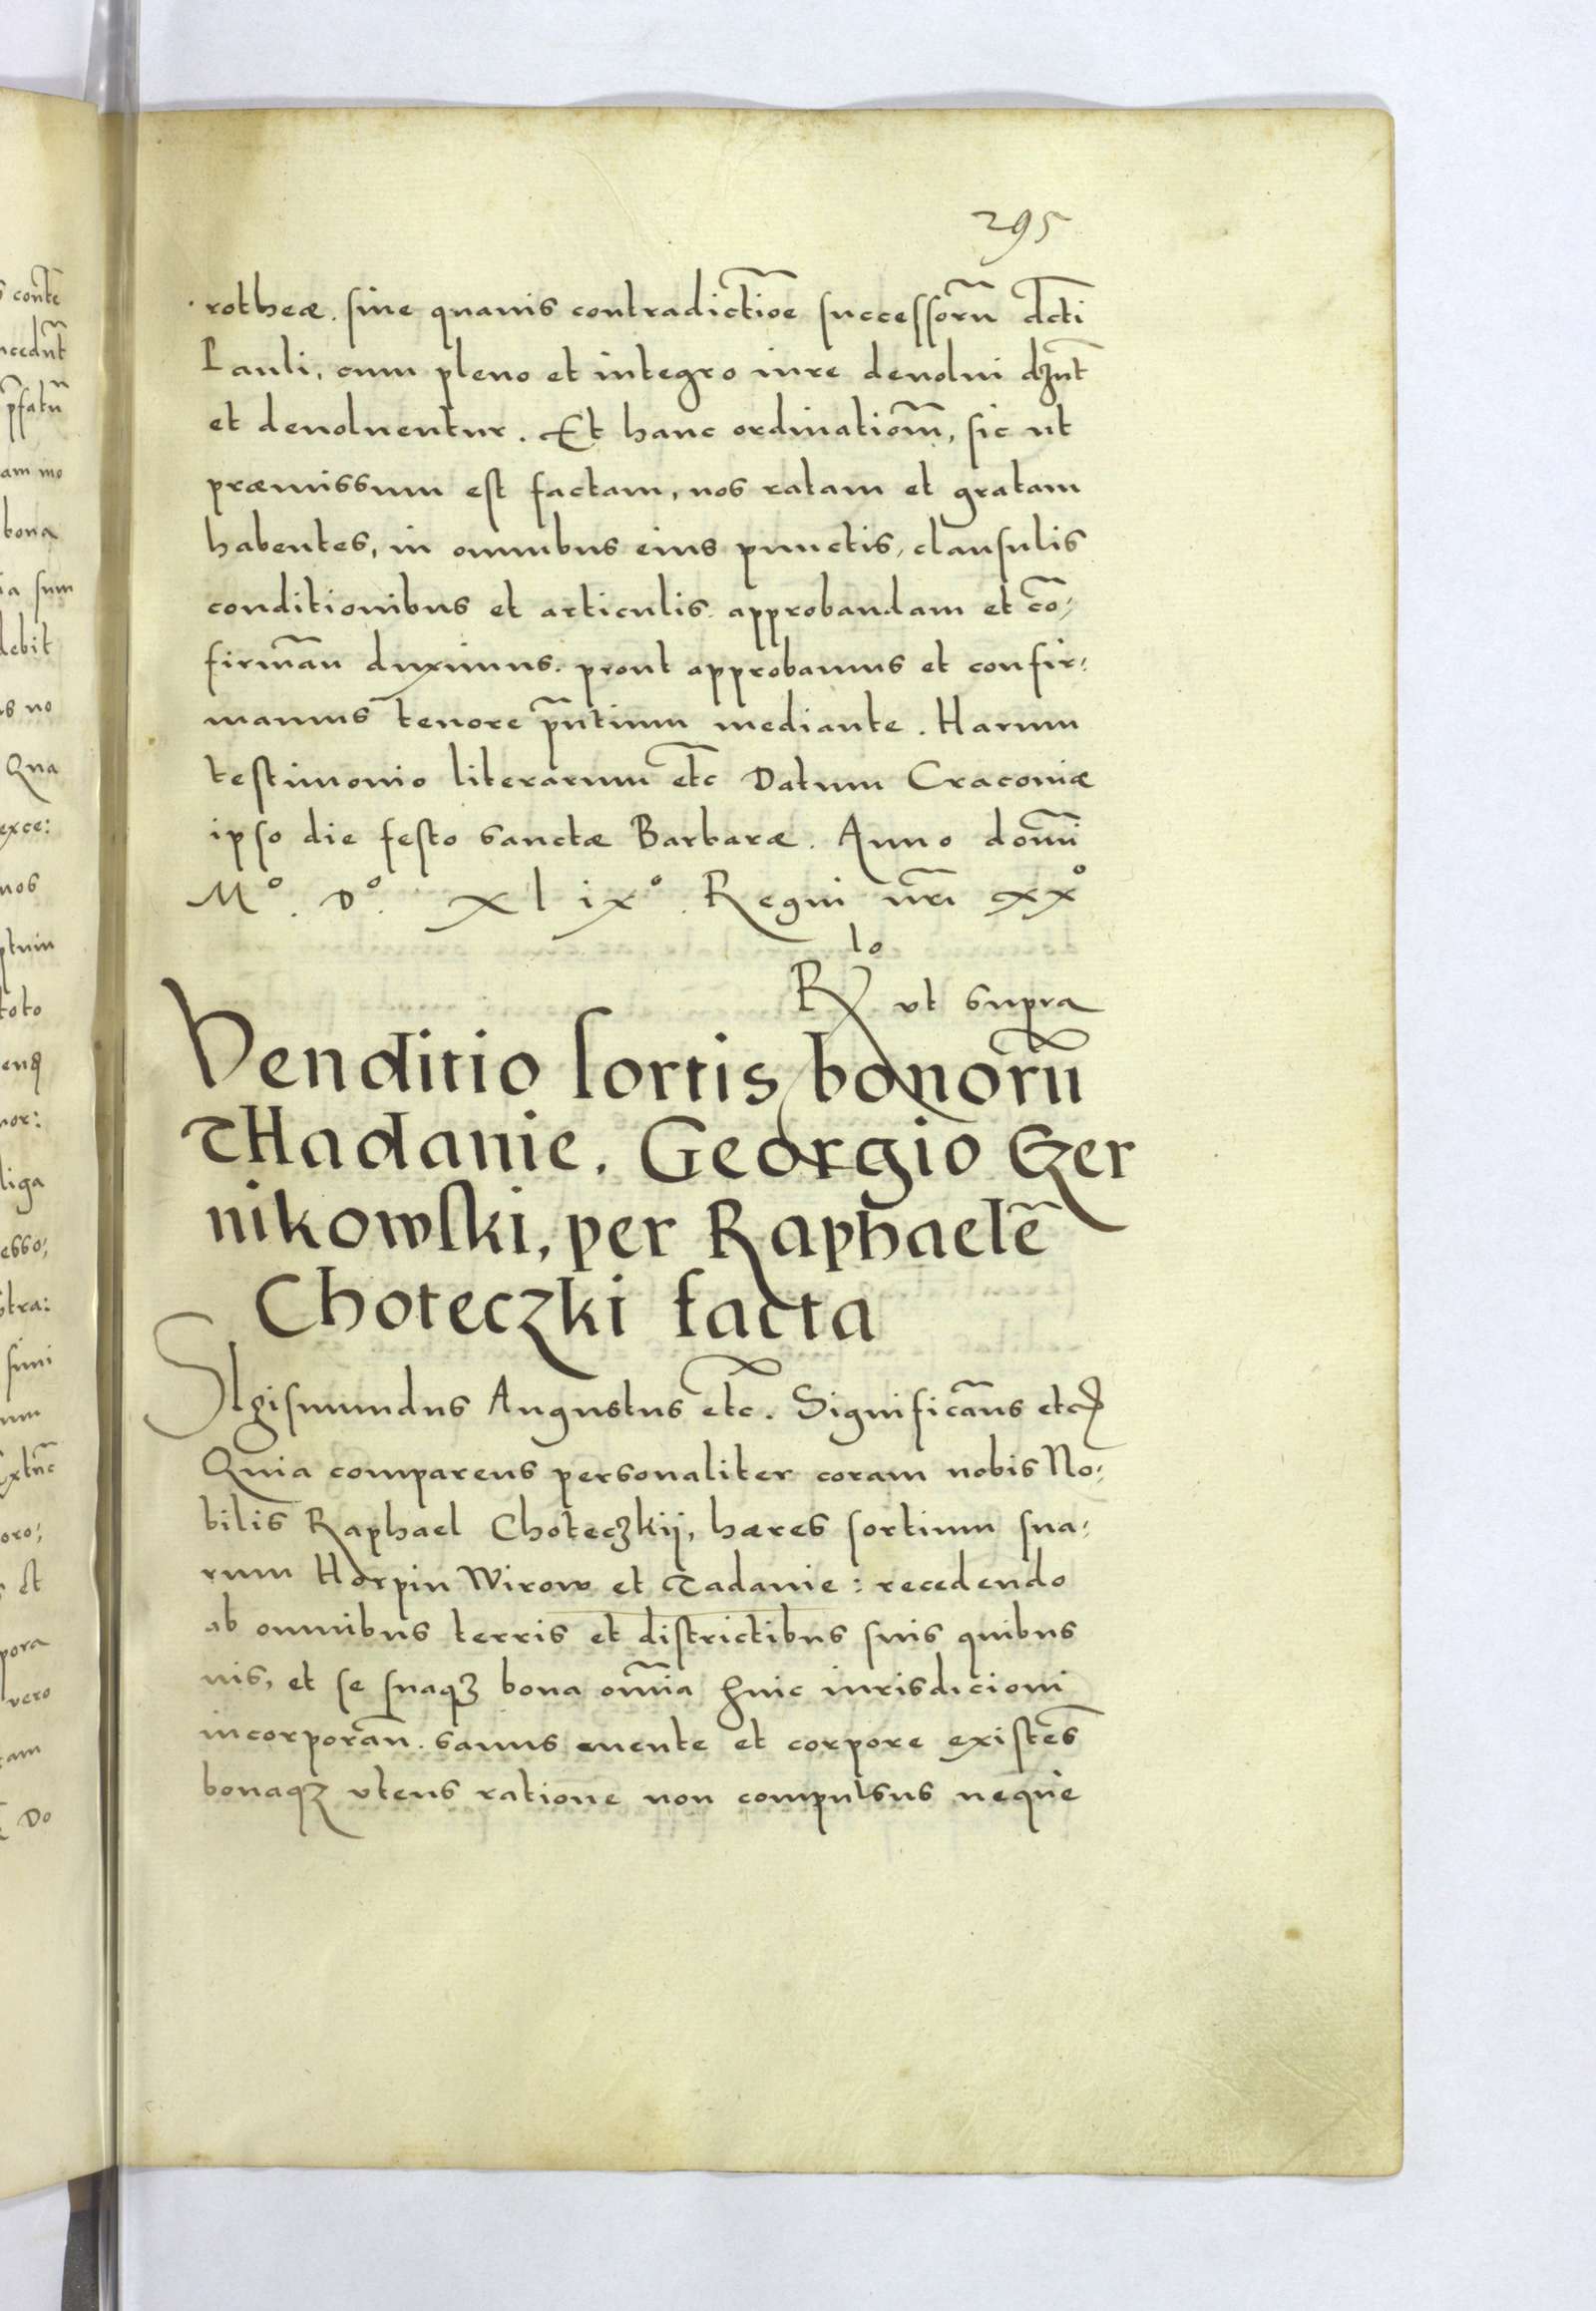 295
rotheæ. sine quauis contradictiõe successorũ dcti
Pauli, cum pleno et integro iure deuolui dznt
et deuoluentur. Et hanc ordinatiom̃, sic ut
præmissum est factam, nos ratam et gratam
habentes, in omnibus eius punctis, clausulis
conditionibus et articulis. approbandam et cõ,
firmãn duximus. prout approbamus et confir:
mamus tenore pñtium mediante. Harum
testimonio literarum etc Datum Cracouiæ
ipso die festo sanctæ Barbaræ. Anno domĩ
Mº. Dº. xlixº. Regni nri xxº
Rlo ut supra
Venditio sortis bonorũ
THadanie. Georgio Czer
nikowski, per Raphaelẽ
Choteczki facta
SIgismundus Augustus etc. Significãus etc
Quia comparens personaliter coram nobis No,
bilis Raphael Choteczkij, hæres sortium sua,
rum Horpin Wirow et Tadanie: recedendo
ab omnibus terris et districtibus suis quibus
uis, et se suaqz bona omĩa huic iurisdicioni
incorporãn. sanus mente et corpore existẽs
bonaqz vtens ratione non compulsus neque